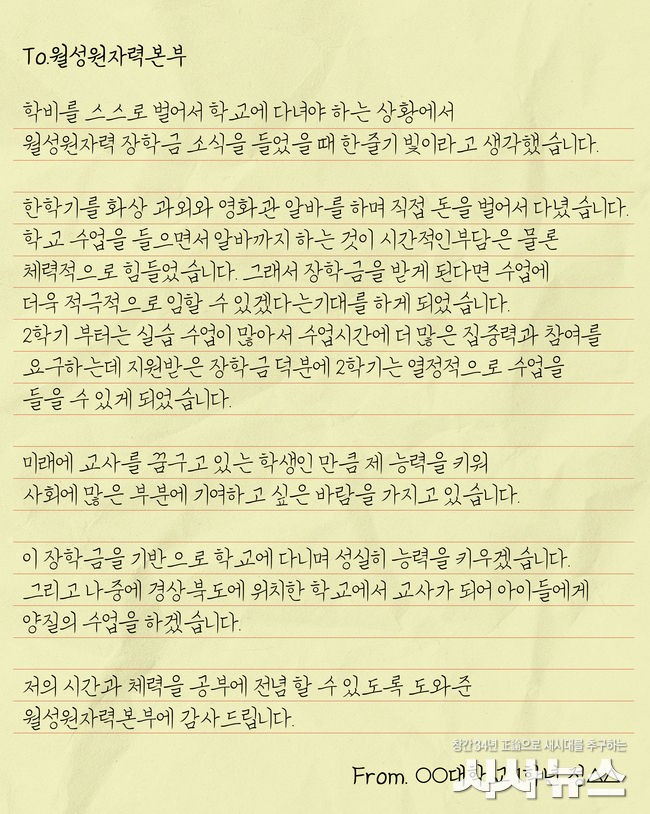 To.월성원자력본부
학비를 스스로 벌어서 학교에 다녀야 하는 상황에서
월성원자력 장학금 소식을 들었을 때 한 줄기 빛이라고 생각했습니다.
한학기를 화상 과외와 영화관 알바를 하며 직접 돈을 벌어서 다녔습니다.
학교 수업을 들으면서 알바까지 하는 것이 시간적인부담은 물론
체력적으로 힘들었습니다. 그래서 장학금을 받게 된다면 수업에
더욱 적극적으로 임할 수 있겠다는기대를 하게 되었습니다.
2학기 부터는 실습 수업이 많아서 수업시간에 더 많은 집중력과 참여를
요구하는데 지원받은 장학금 덕분에 2학기는 열정적으로 수업을
들을 수 있게 되었습니다.
미래에 교사를 꿈꾸고 있는 학생인 만큼 제 능력을 키워
사회에 많은 부분에 기여하고 싶은 바람을 가지고 있습니다.
이 장학금을 기반으로 학교에 다니며 성실히 능력을 키우겠습니다.
그리고 나중에 경상북도에 위치한 학교에서 교사가 되어 아이들에게
양질의 수업을 하겠습니다.
저의 시간과 체력을 공부에 전념 할 수 있도록 도와준
월성원자력본부에 감사드립니다.
창간 34년 正論으로 새시대를 추구하는
시사뉴스
From. ○○대학교 1학년